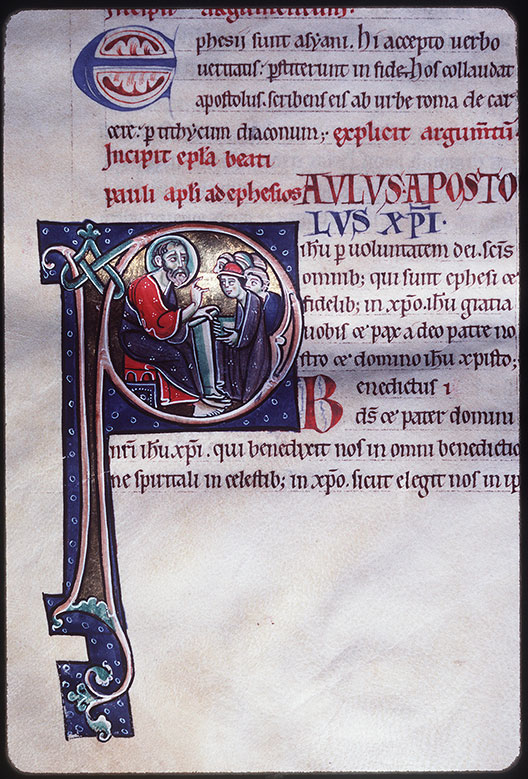 Incipit argumentum.
Ephesii sunt asyani. hi accepto uerbo
ueritatis: ꝑstiterunt in fide. hos collaudat
apostolus. scribens eis ab urbe roma de car
cere. ꝑ tithycum diaconum; explicit argum̄tū.
Incipit epła beati
pauli apłi ad ephesios
PAULUS APOSTO
LUS XP̄I.
ihu ꝑ uoluntatem dei. sc̄is
omnib; qui sunt ephesi &
fidelib; in xp̄o. ihu gratia
uobis & pax a deo patre no
stro & domino ihu xp̄isto;
Benedictus
ds̄ & pater domini
nr̄i ihu. xp̄i. qui benedixit nos in omni benedictio
ne spiritali in celestib; in xp̄o. sicut elegit nos in ip